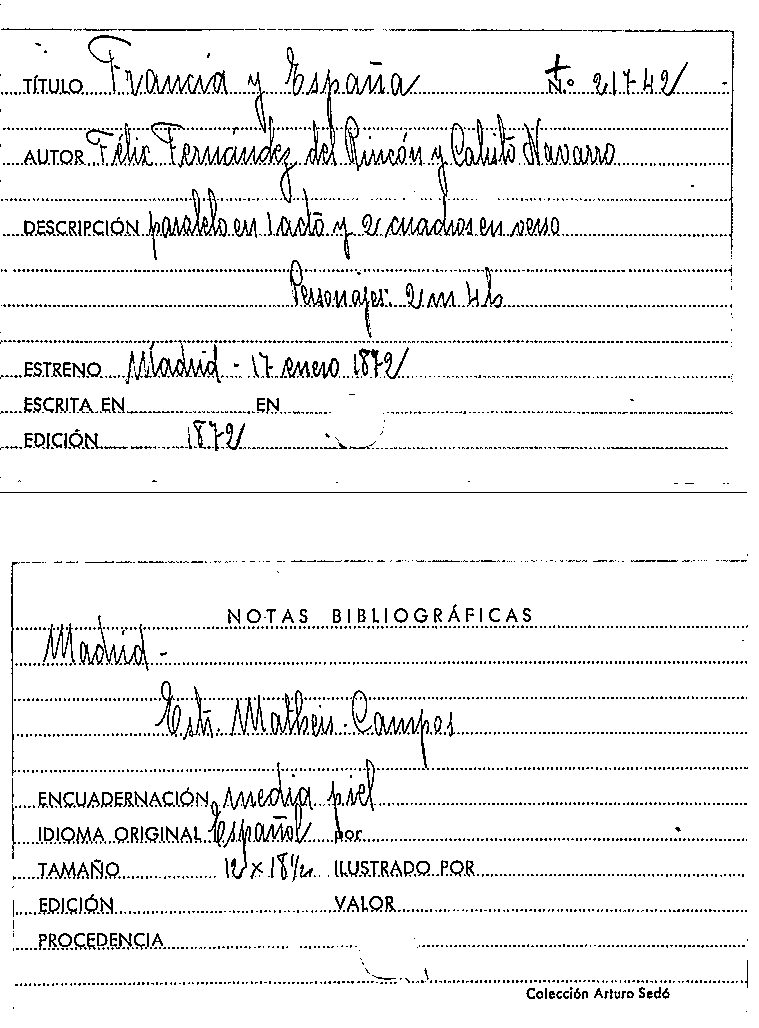 TÍTULO Francia y España N.º 21742
AUTOR Félix Fernández del Rincón y Calisto Navarro
DESCRIPCIÓN paralelo en 1 acto y 2 cuadros en verso
Personajes: 2 m 4 h
ESTRENO Madrid - 17 enero 1872
ESCRITA EN EN
EDICIÓN 1872
NOTAS BIBLIOGRÁFICAS
Madrid -
Estr. Matheis - Campos
ENCUADERNACIÓN media piel
IDIOMA ORIGINAL Español por
TAMAÑO 12 x 18½ ILUSTRADO POR
EDICIÓN VALOR
PROCEDENCIA
Colección Arturo Sedó